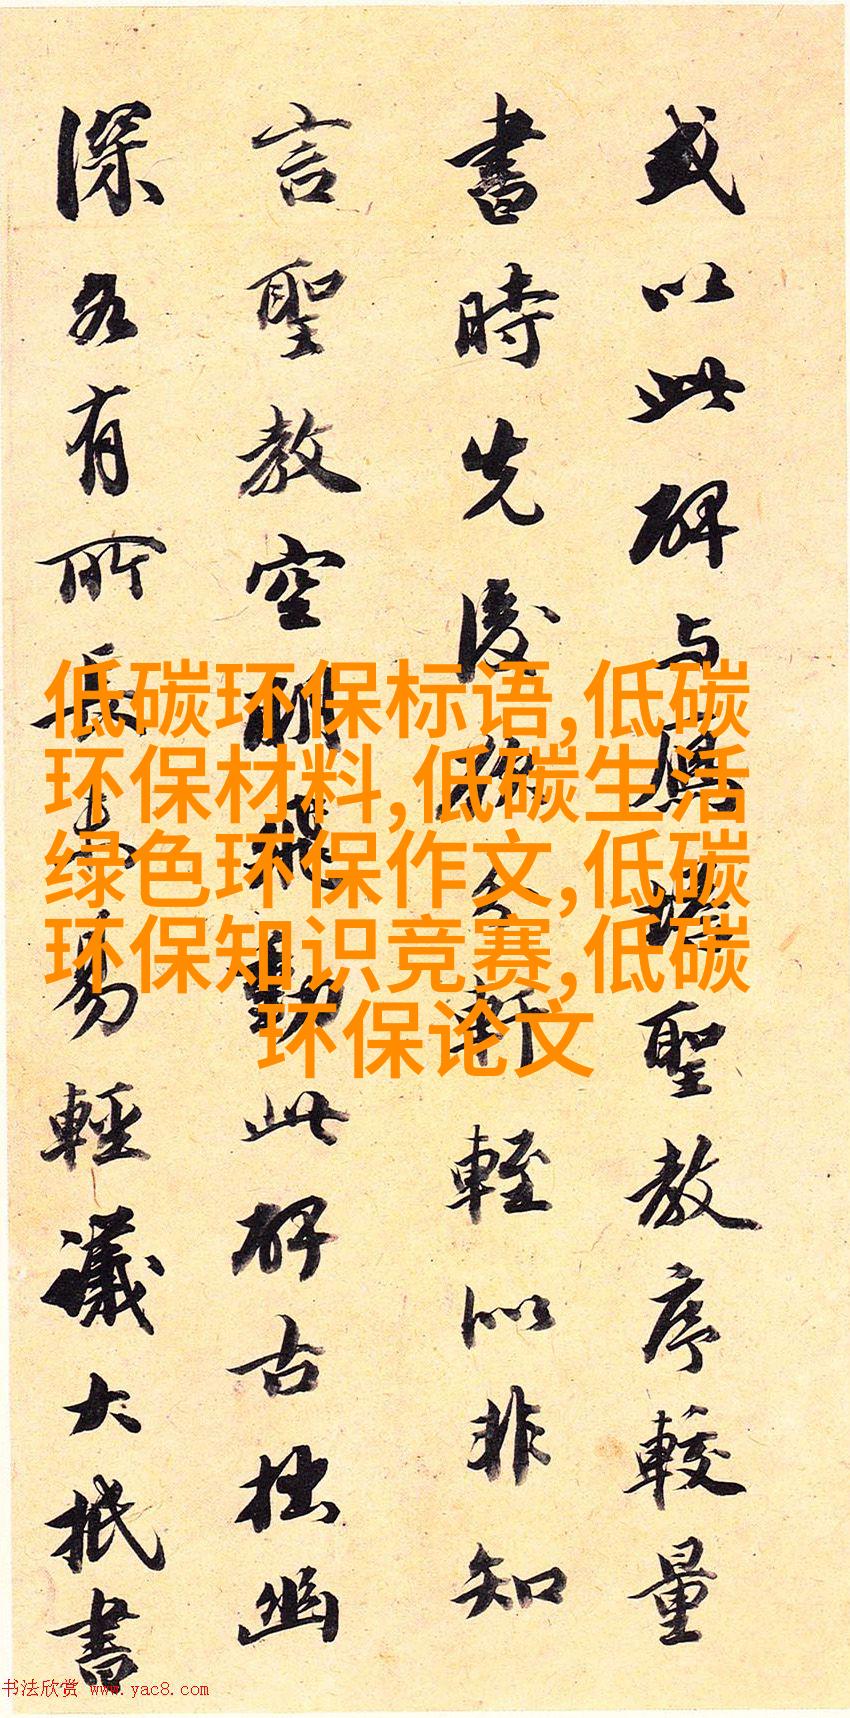 或以此碑与鴈塔聖教序較量
書時先後分軒輊似非知
言聖教空飛動此碑古拙幽
深各有所長未易輕議大抵書
低碳环保标语,低碳
环保材料,低碳生活
绿色环保作文,低碳
环保知识竞赛,低碳
环保论文
书法欣赏 www.yac8.com